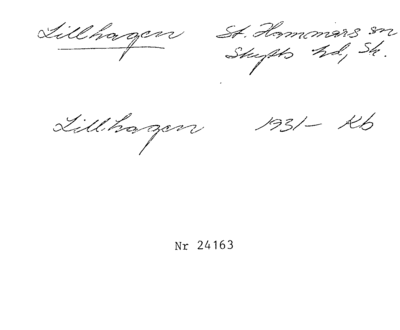 Lillhagen St. Hammars sn
Skytts hd, Sk.
Lillhagen 1931- Kb
Nr 24163